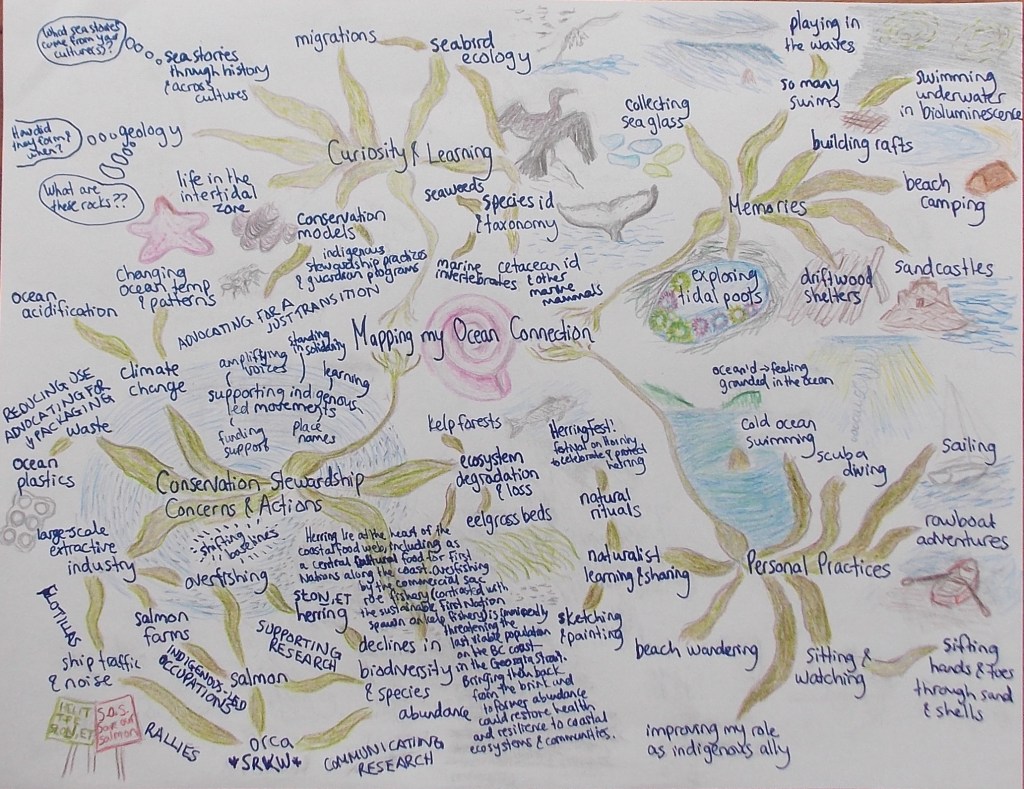 What sea stories
come from your
culture(s)?
sea stories
through history
& across
cultures
migrations
seabird
ecology
How did
they form?
when?
geology
What are
these rocks??
life in the
intertidal
zone
Curiosity & Learning
conservation
models
indigenous
stewardship practices
& guardian programs
seaweeds
species id
& taxonomy
marine
invertebrates
cetacean id
& other
marine
mammals
collecting
sea glass
playing in
the waves
so many
swims
swimming
underwater
in bioluminescence
building rafts
beach
camping
Memories
exploring
tidal pools
driftwood
shelters
sandcastles
Mapping my Ocean Connection
changing
ocean temp
& patterns
ocean
acidification
climate
change
ADVOCATING FOR A
JUST TRANSITION
amplifying
voices
standing
in solidarity
learning
supporting indigenous
led movements
funding
support
place
names
REDUCING USE
ADVOCATING FOR
↓ PACKAGING
waste
ocean
plastics
Conservation Stewardship
Concerns & Actions
kelp forests
ecosystem
degradation
& loss
eelgrass beds
large scale
extractive
industry
shifting
baselines
overfishing
FLOTILLAS
salmon
farms
ship traffic
& noise
INDIGENOUS-LED
OCCUPATIONS
SUPPORTING
RESEARCH
salmon
SȽOṈ,ET
herring
declines in
biodiversity
& species
abundance
orca
*SRKW*
COMMUNICATING
RESEARCH
RALLIES
S.O.S.
Save our
Salmon
Herring lie at the heart of the
coastal food web, including as
a central cultural food for First
Nations along the coast. Overfishing
by the commercial sac
roe fishery (contrasted with
the sustainable First Nation
spawn on kelp fishery) is imminently
threatening the
last viable population
on the BC coast
in the Georgia Strait.
Bringing them back
from the brink and
to former abundance
could restore health
and resilience to coastal
ecosystems & communities.
oceanid → feeling
grounded in the ocean
cold ocean
swimming
scuba
diving
sailing
rowboat
adventures
Personal Practices
HerringFest!
festival on Hornby
to celebrate & protect
herring
natural
rituals
naturalist
learning & sharing
sketching
& painting
beach wandering
improving my role
as indigenous ally
sitting &
watching
sifting
hands & toes
through sand
& shells